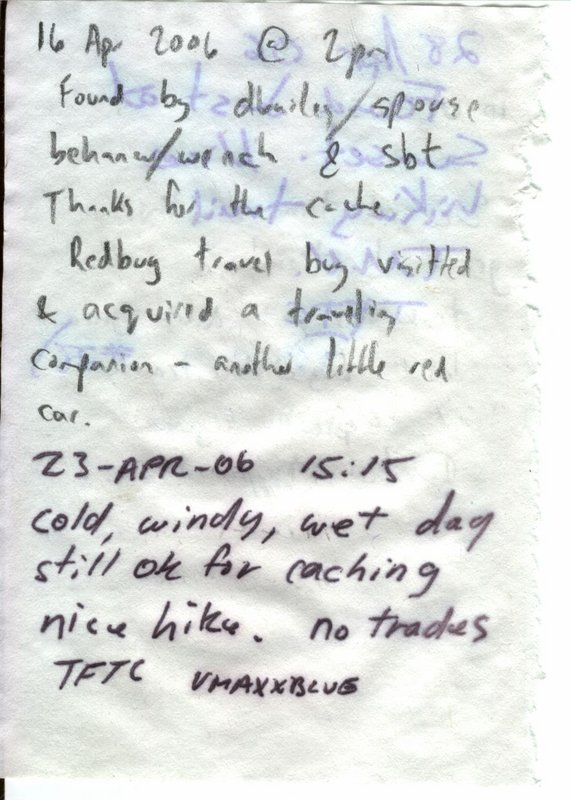 16 Apr 2006 @ 2pm
Found by dbailey/spouse
/wench & sbt
Thanks for the cache
Redbug travel bug visitted
& acquired a traveling
companion - another little red
car.
23-APR-06 15:15
cold, windy, wet day
still ok for caching
nice hike. no trades
TFTC VMAXXBLUE